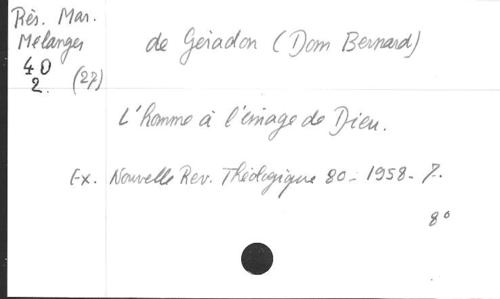 Rés. Mar.
Mélanges
40
2. (27)
de Géradon (Dom Bernard)
L'homme à l'image de Dieu.
Ex. Nouvelle Rev. Théologique 80 - 1958 - 7.
8°